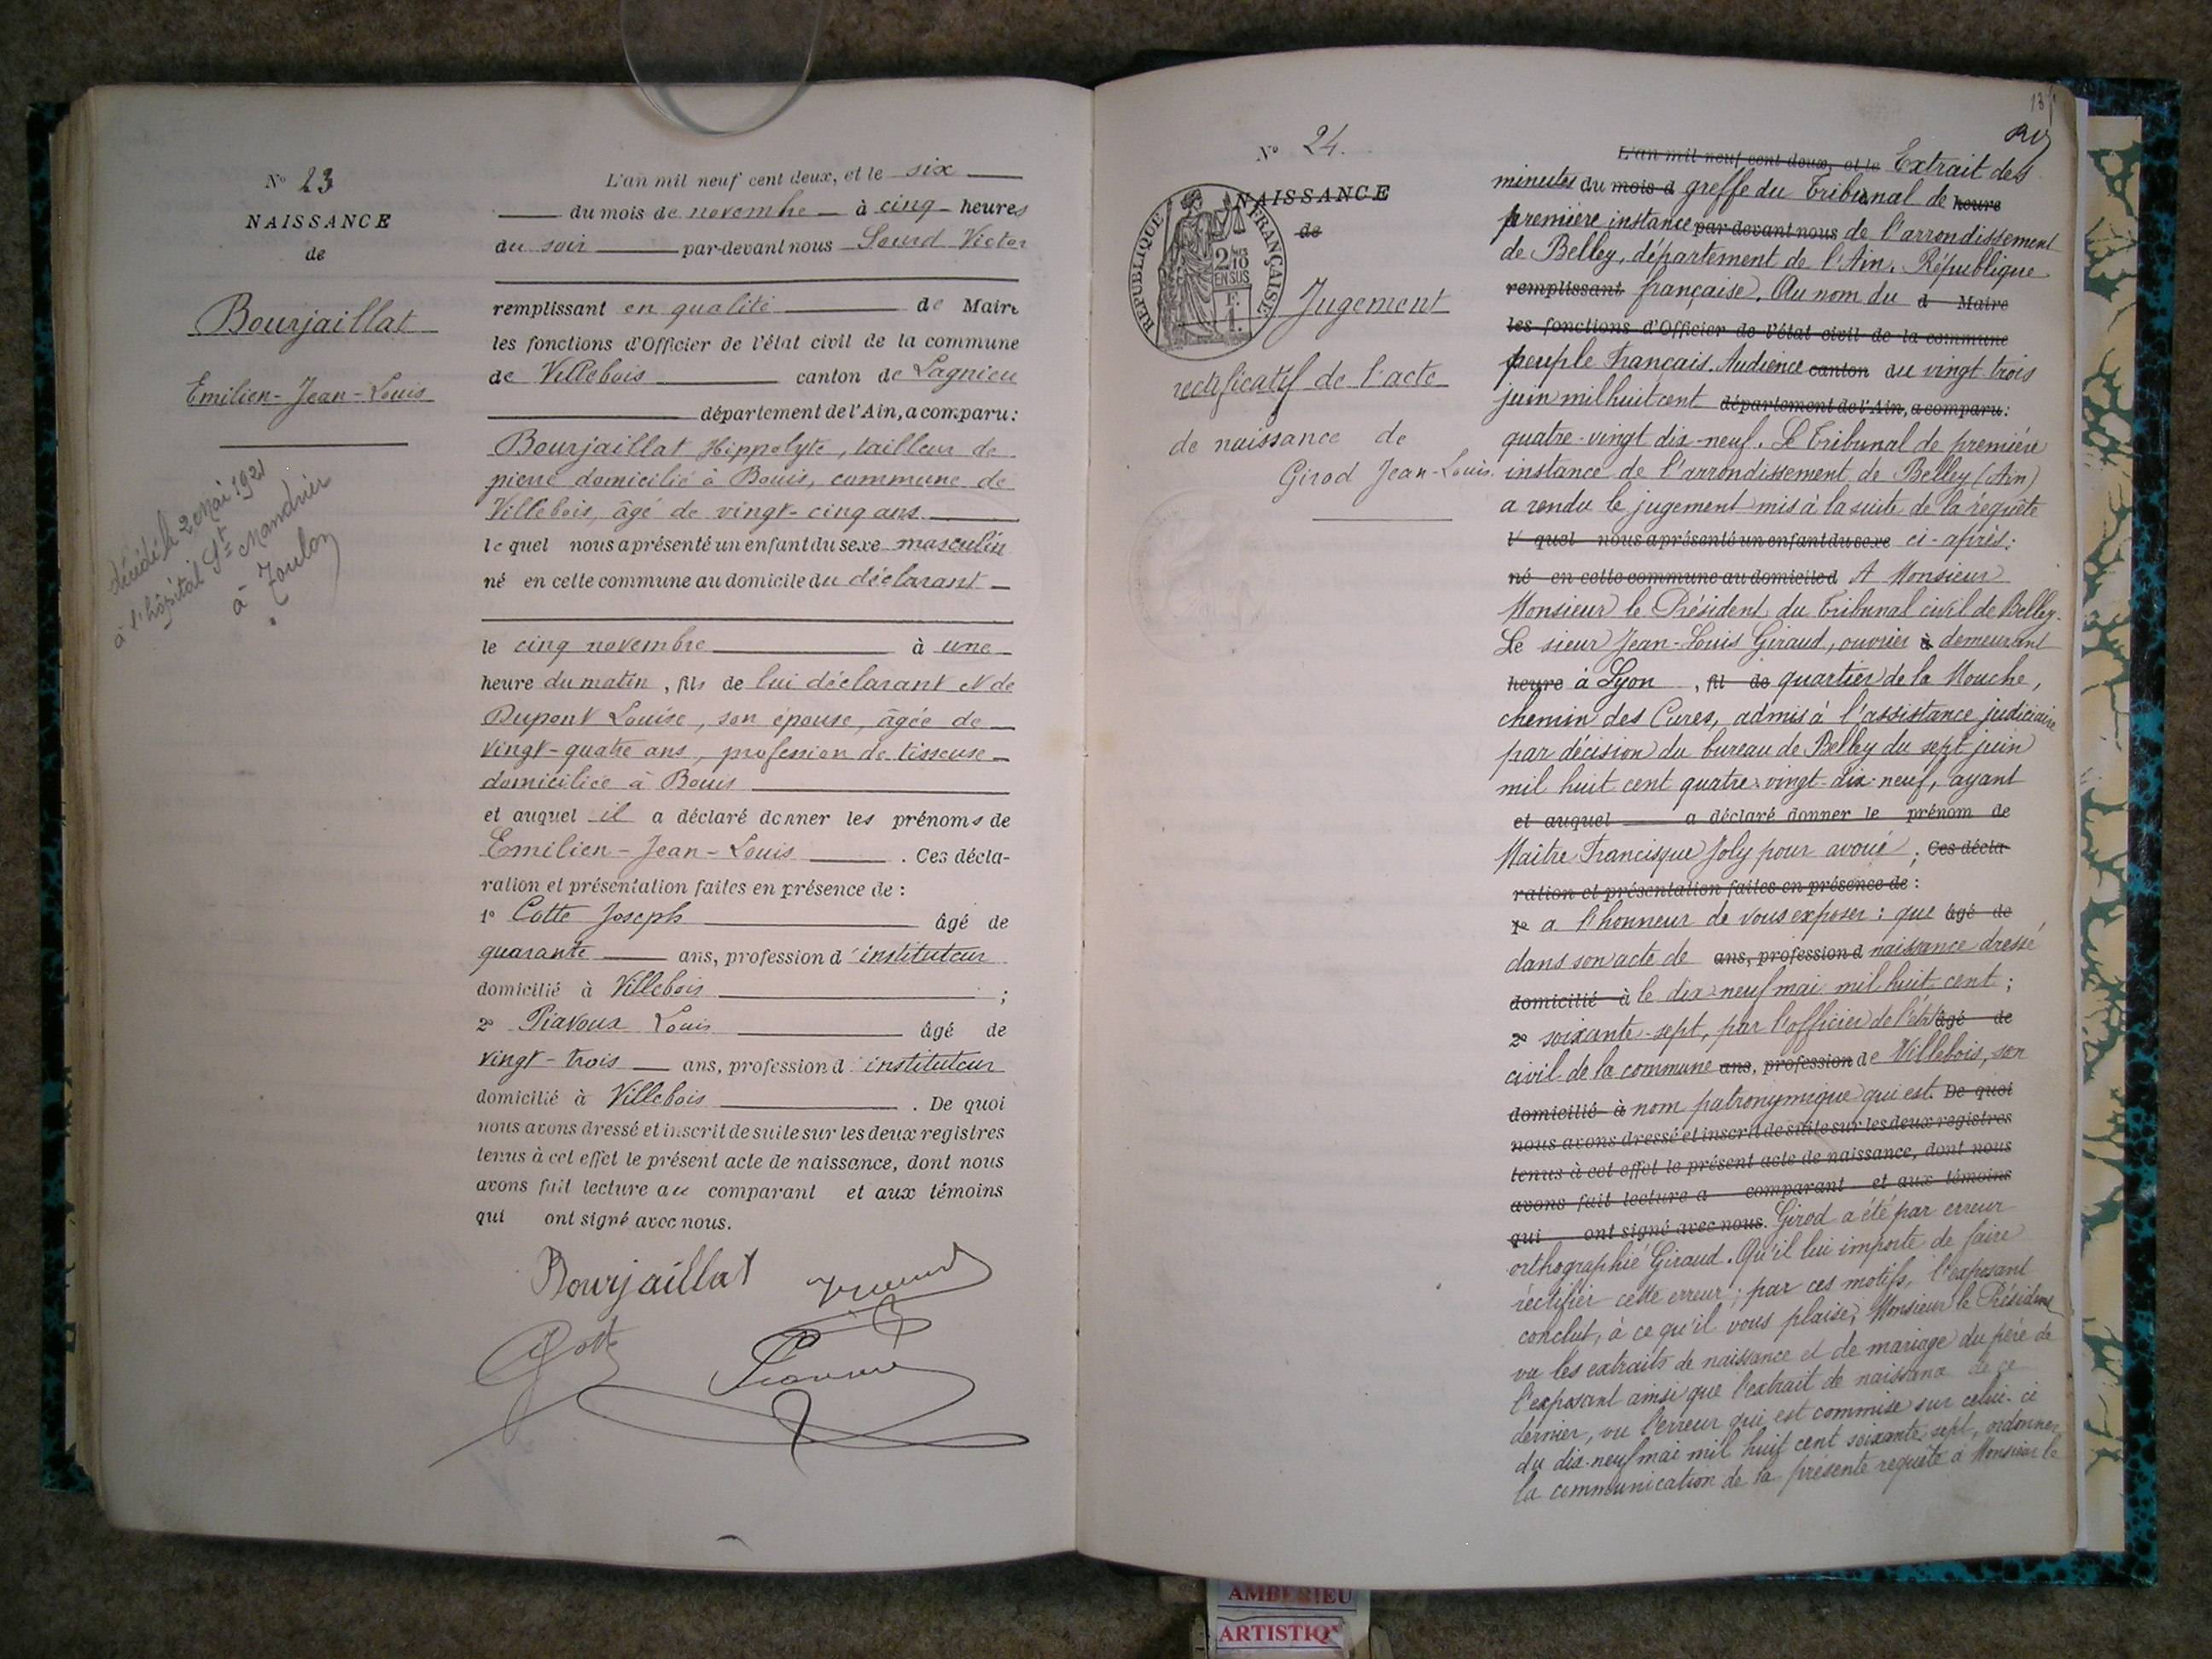 N° 23
NAISSANCE
de
Bourjaillat
Emilien-Jean-Louis
décédé le 2 Mai 1921
à l'hôpital St Mandrier
à Toulon
L'an mil neuf cent deux, et le six
du mois de novembre à cinq heures
du soir par-devant nous Sourd Victor
remplissant en qualité de Maire
les fonctions d'Officier de l'état civil de la commune
de Villebois canton de Lagnieu
département de l'Ain, a comparu:
Bourjaillat Hippolyte, tailleur de
pierre domicilié à Bouis, commune de
Villebois, âgé de vingt-cinq ans
lequel nous a présenté un enfant du sexe masculin
né en cette commune au domicile du déclarant
le cinq novembre à une
heure du matin, fils de lui déclarant et de
Dupont Louise, son épouse, âgée de
vingt-quatre ans, profession de tisseuse
domiciliée à Bouis
et auquel il a déclaré donner les prénoms de
Emilien-Jean-Louis. Ces décla-
ration et présentation faites en présence de:
1° Cotte Joseph âgé de
quarante ans, profession d'instituteur
domicilié à Villebois;
2° Piavoux Louis âgé de
vingt-trois ans, profession d'instituteur
domicilié à Villebois. De quoi
nous avons dressé et inscrit de suite sur les deux registres
tenus à cet effet le présent acte de naissance, dont nous
avons fait lecture au comparant et aux témoins
qui ont signé avec nous.
Bourjaillat
Cotte
N° 24.
NAISSANCE
de
RÉPUBLIQUE FRANÇAISE
2/10
EN SUS
Jugement
rectificatif de l'acte
de naissance de
Girod Jean-Louis.
L'an mil neuf cent deux, et le Extrait des
minutes du mois d greffe du Tribunal de heure
première instance par-devant nous de l'arrondissement
de Belley, département de l'Ain. République
remplissant française. Au nom du d Maire
les fonctions d'Officier de l'état civil de la commune
peuple Français. Audience canton du vingt trois
juin mil huit cent département de l'Ain, a comparu:
quatre-vingt dix-neuf. Le Tribunal de première
instance de l'arrondissement de Belley (Ain)
a rendu le jugement mis à la suite de la requête
l quel nous a présenté un enfant du sexe ci-après:
né en cette commune au domicile d A Monsieur
Monsieur le Président du Tribunal civil de Belley.
Le sieur Jean-Louis Giraud, ouvrier à demeurant
heure à Lyon, fil de quartier de la Mouche,
chemin des Cures, admis à l'assistance judiciaire
par décision du bureau de Belley du sept juin
mil huit cent quatre-vingt-dix-neuf, ayant
et auquel a déclaré donner le prénom de
Maître Francisque Joly pour avoué; Ces décla-
ration et présentation faites en présence de:
1° a l'honneur de vous exposer: que âgé de
dans son acte de ans, profession d naissance dressé
domicilié à le dix-neuf mai mil huit cent;
2° soixante-sept, par l'officier de l'état âgé de
civil de la commune ans, profession de Villebois, son
domicilié à nom patronymique qui est. De quoi
nous avons dressé et inscrit de suite sur les deux registres
tenus à cet effet le présent acte de naissance, dont nous
avons fait lecture a comparant et aux témoins
qui ont signé avec nous. Girod a été par erreur
orthographié Giraud. Qu'il lui importe de faire
rectifier cette erreur; par ces motifs, l'exposant
conclut, à ce qu'il vous plaise, Monsieur le Président
vu les extraits de naissance et de mariage du père de
l'exposant ainsi que l'extrait de naissance de ce
dernier, vu l'erreur qui est commise sur celui-ci
du dix-neuf mai mil huit cent soixante-sept, ordonner
la communication de la présente requête à Monsieur le
AMBERIEU
ARTISTIQ